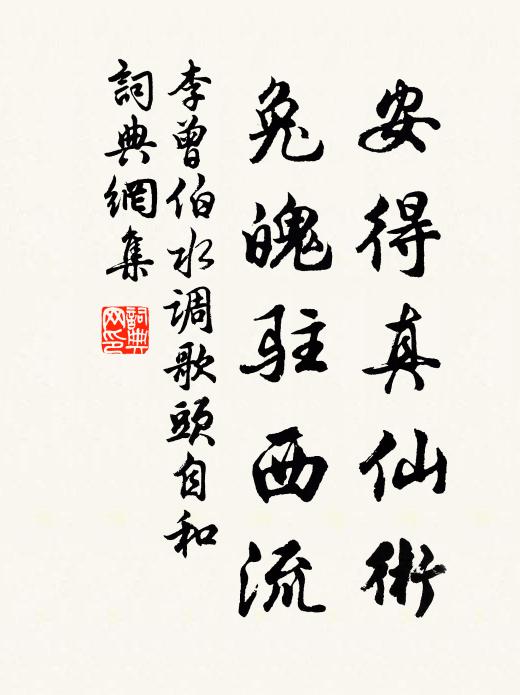 安得真仙術
兔魄駐西流
李曾伯水调歌頭自和
詞典網集
詞典网印